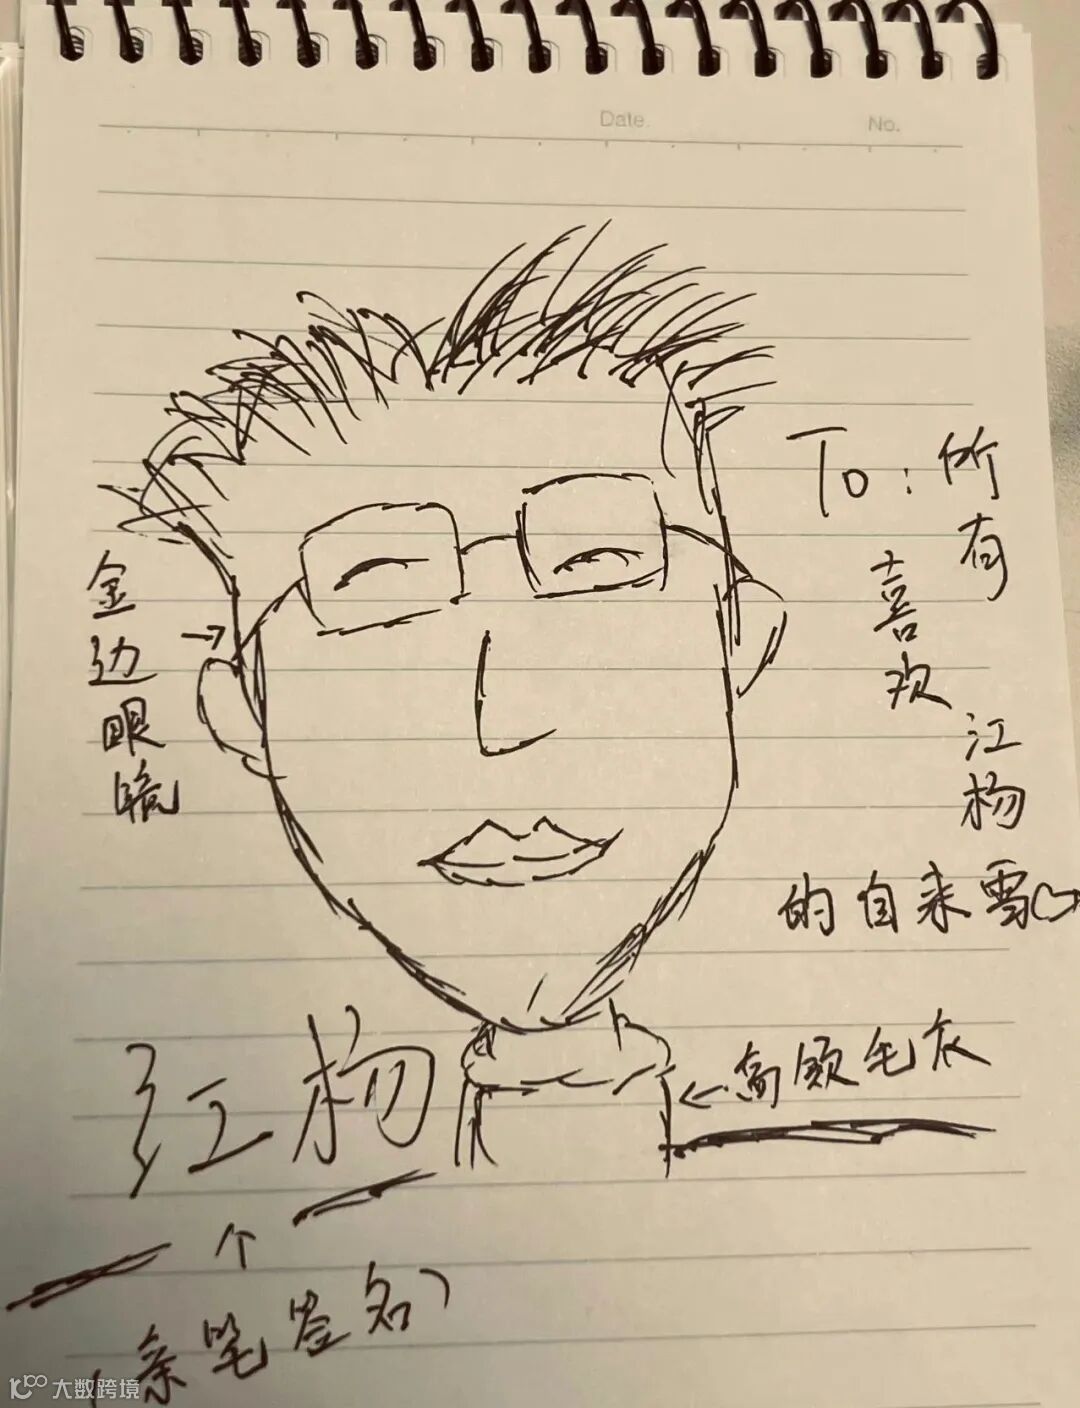 Date.
No.
To：所有
喜欢
江杨
的自来雪
金边眼镜
→
←高领毛衣
江杨
个
（亲笔签名）
大数跨境